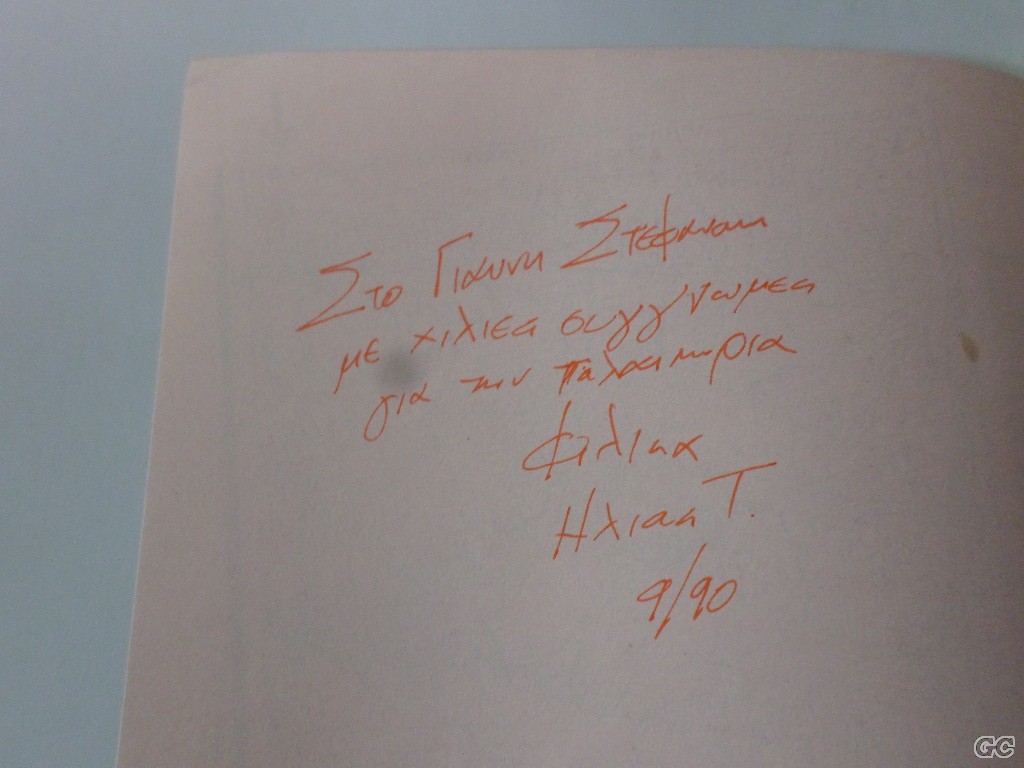 Στο Γιαννη Στεφανακη
με χιλιες συγγνωμες
για την ταλαιπωρια
Φιλικα
Ηλιας Τ.
9/90
GC